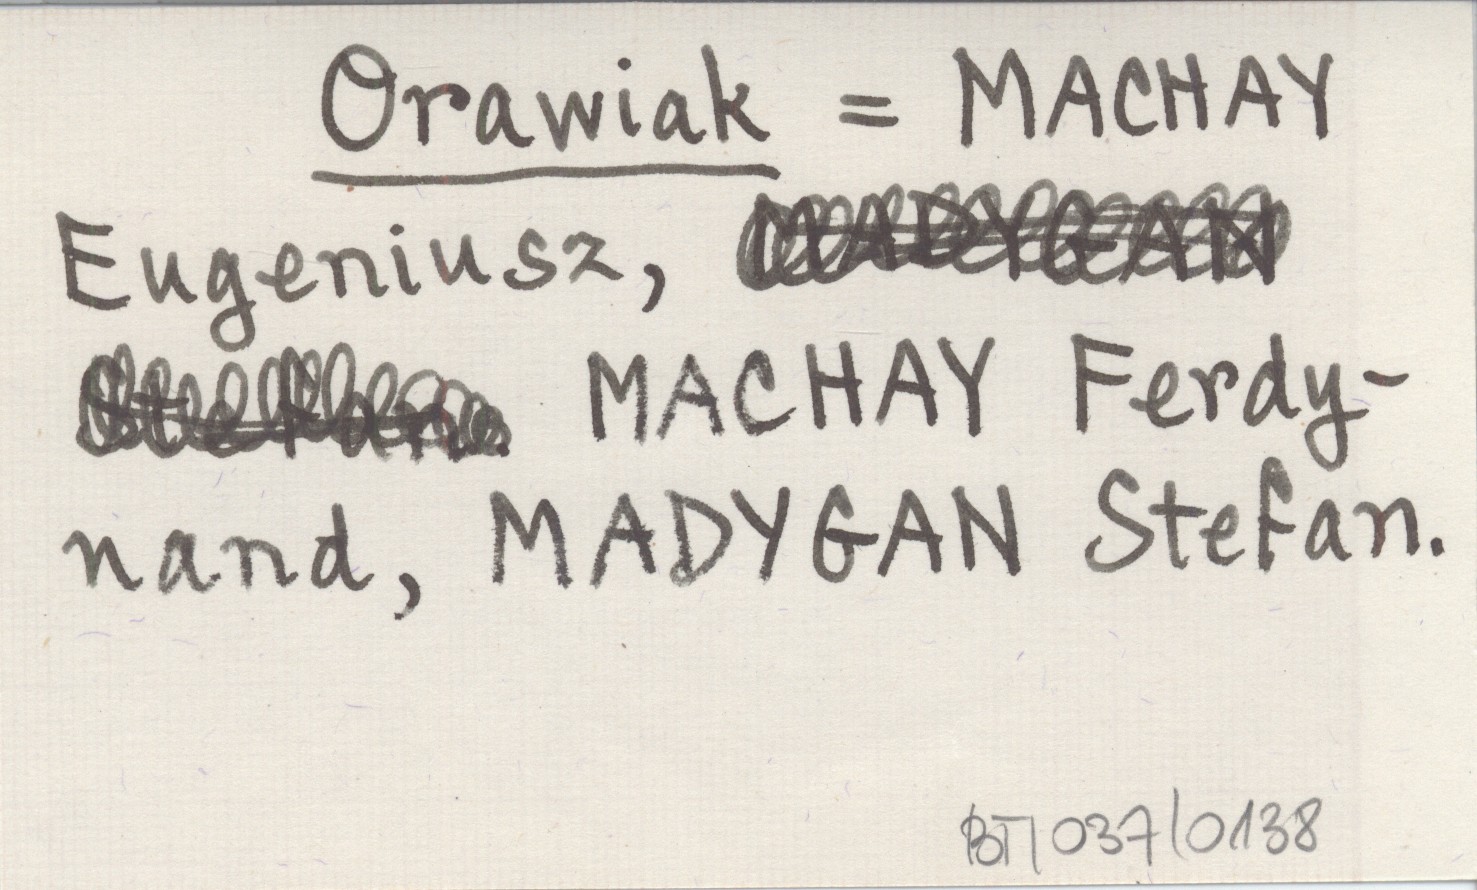 Orawiak = MACHAY
Eugeniusz, MADYGAN
Stefan. MACHAY Ferdy-
nand, MADYGAN Stefan.
BT/037/0138